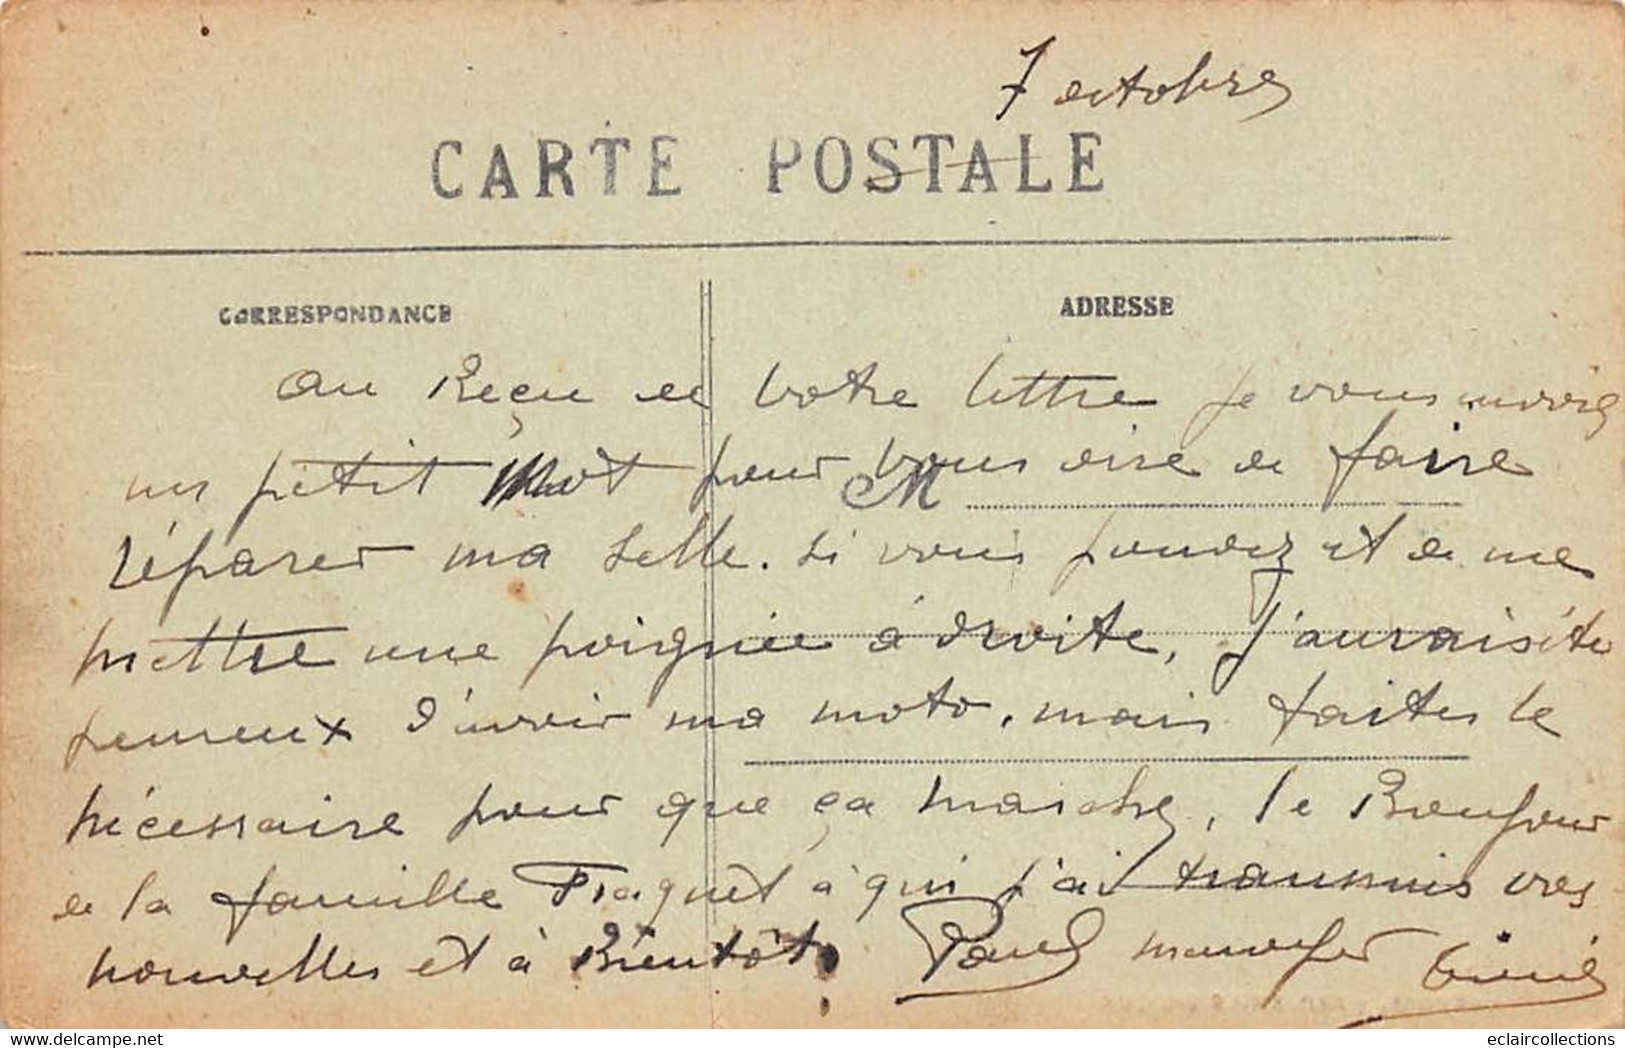 7 octobre
CARTE POSTALE
CORRESPONDANCE
ADRESSE
au Reçu de votre lettre je vous envoie
un petit Mot pour vous dire de faire
M
réparer ma selle. si vous pouvez et de me
mettre une poignée à droite, j'aurais été
heureux d'avoir ma moto, mais faites le
nécessaire pour que ça marche, le Bonjour
de la famille Fraquet à qui j'ai transmis vos
nouvelles et à Bientôt, Paul
eclaircollections